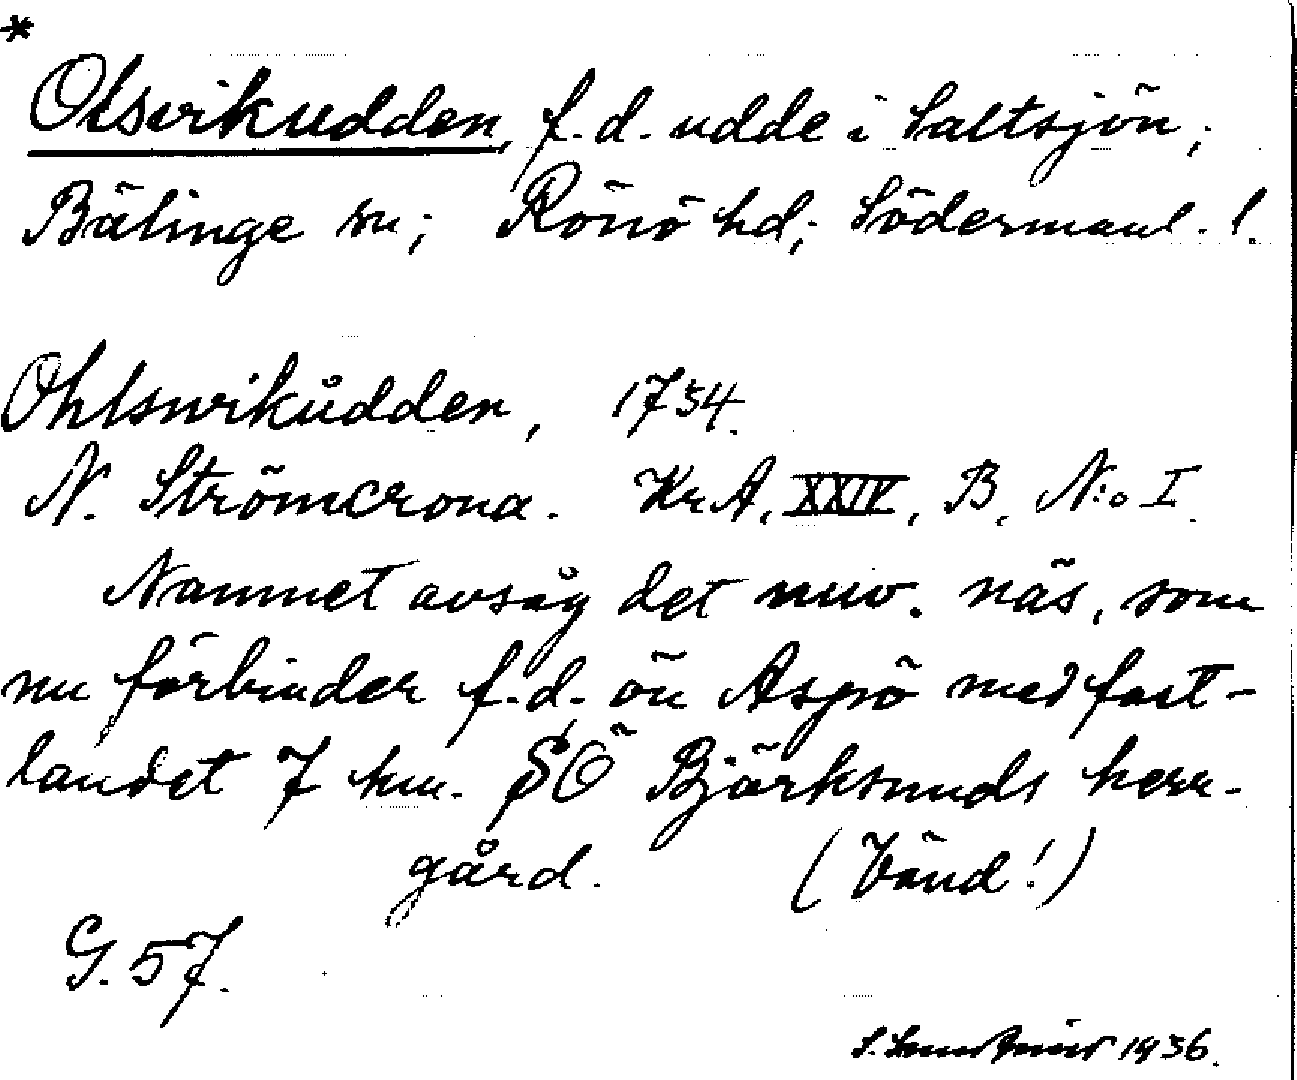 *
Olsvikudden, f.d. udde i Saltsjön;
Bälinge sn; Rönö hd; Södermanl. l.
Ohlswikůdden, 1734.
N. Strömcrona. Kr.A, XXIV, B, N:o I.
Namnet avsåg det nuv. näs, som
nu förbinder f.d. ön Aspö med fast-
landet 7 km. SÖ Björksunds herr-
gård. (Vänd!)
G. 57.
S. 1936.